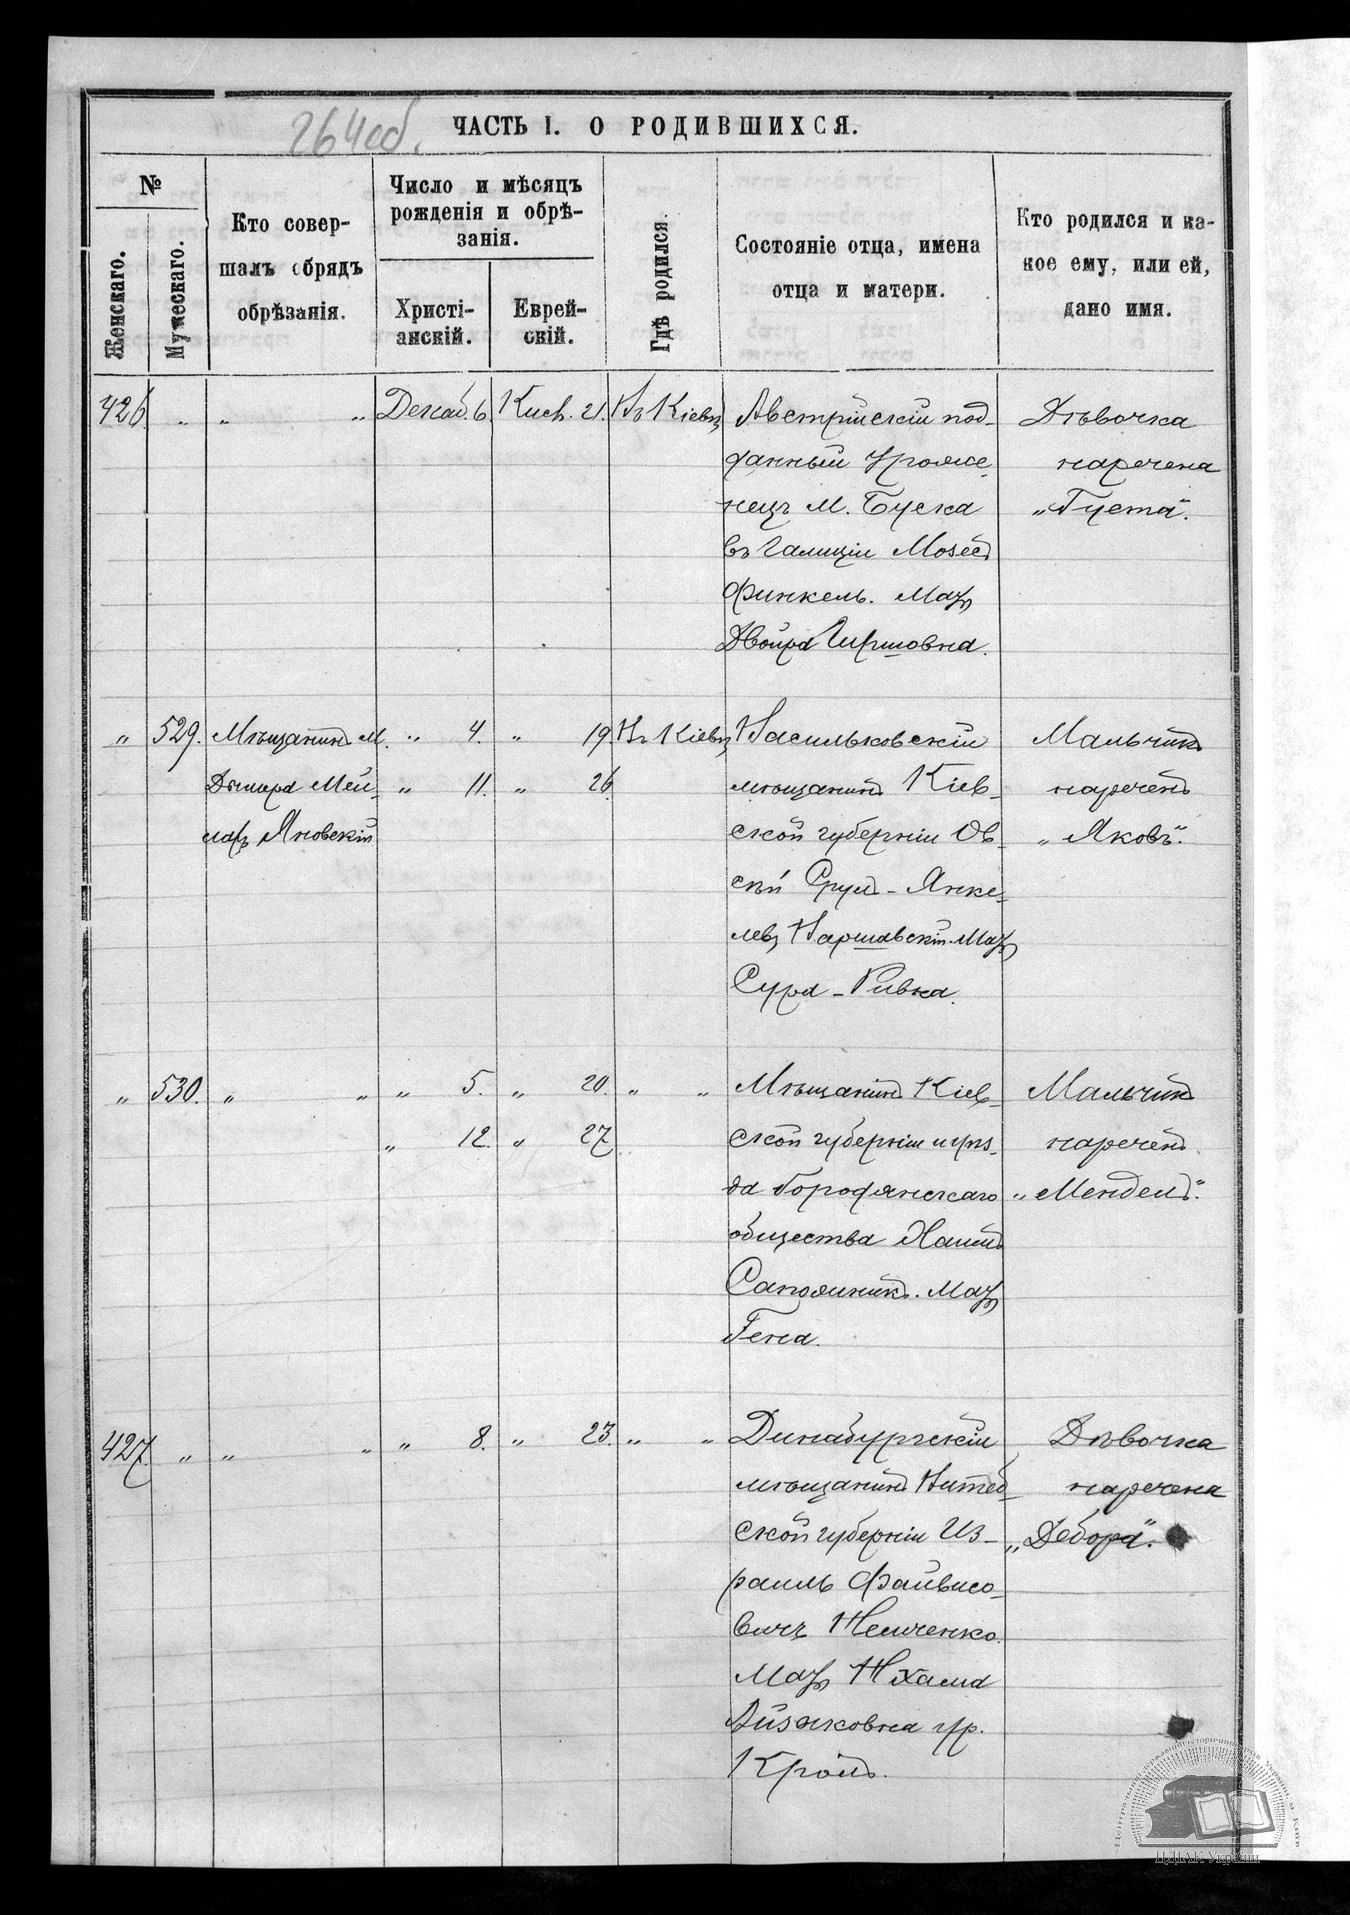 264об.
ЧАСТЬ I. О РОДИВШИХСЯ.
№
Женскаго.
Мужескаго.
Кто совер-
шалъ обрядъ
обрѣзанія.
Число и мѣсяцъ
рожденія и обрѣ-
занія.
Христі-
анскій.
Еврей-
скій.
Гдѣ родился.
Состояніе отца, имена
отца и матери.
Кто родился и ка-
кое ему, или ей,
дано имя.
426. " " " Декаб. 6. Кисл. 21. Въ Кіевѣ
Австрійскій под-
данный уроже-
нецъ м. Буска
въ Галиціи Мозес
Финкель. Мать
Двойра Гиршовна.
Дѣвочка
наречена
„Густа".
" 529. Мѣщанинъ м. " 4. " 19. Въ Кіевѣ
Дымера Мей- " 11. " 26.
Яновскій
Васильковскій
мѣщанинъ Кіев-
ской губерніи Ов-
сѣй Сруль-Янке-
левъ Варшавскій. Мать
Сура-Ривка.
Мальчикъ
нареченъ
„Яковъ".
" 530. " " " 5. " 20. " "
" 12. " 27.
Мѣщанинъ Кіев-
ской губерніи и уѣз-
да Бородянскаго
общества Хаимъ
Сапожникъ. Мать
Геня.
Мальчикъ
нареченъ
„Мендель".
427. " " " " 8. " 23. " "
Динабургскій
мѣщанинъ Витеб-
ской губерніи Из-
раиль Файвисо-
вичъ Немченко.
Мать Нхама
Айзиковна ур.
Кроль.
Дѣвочка
наречена
„Дебора".
ЦДІАК України